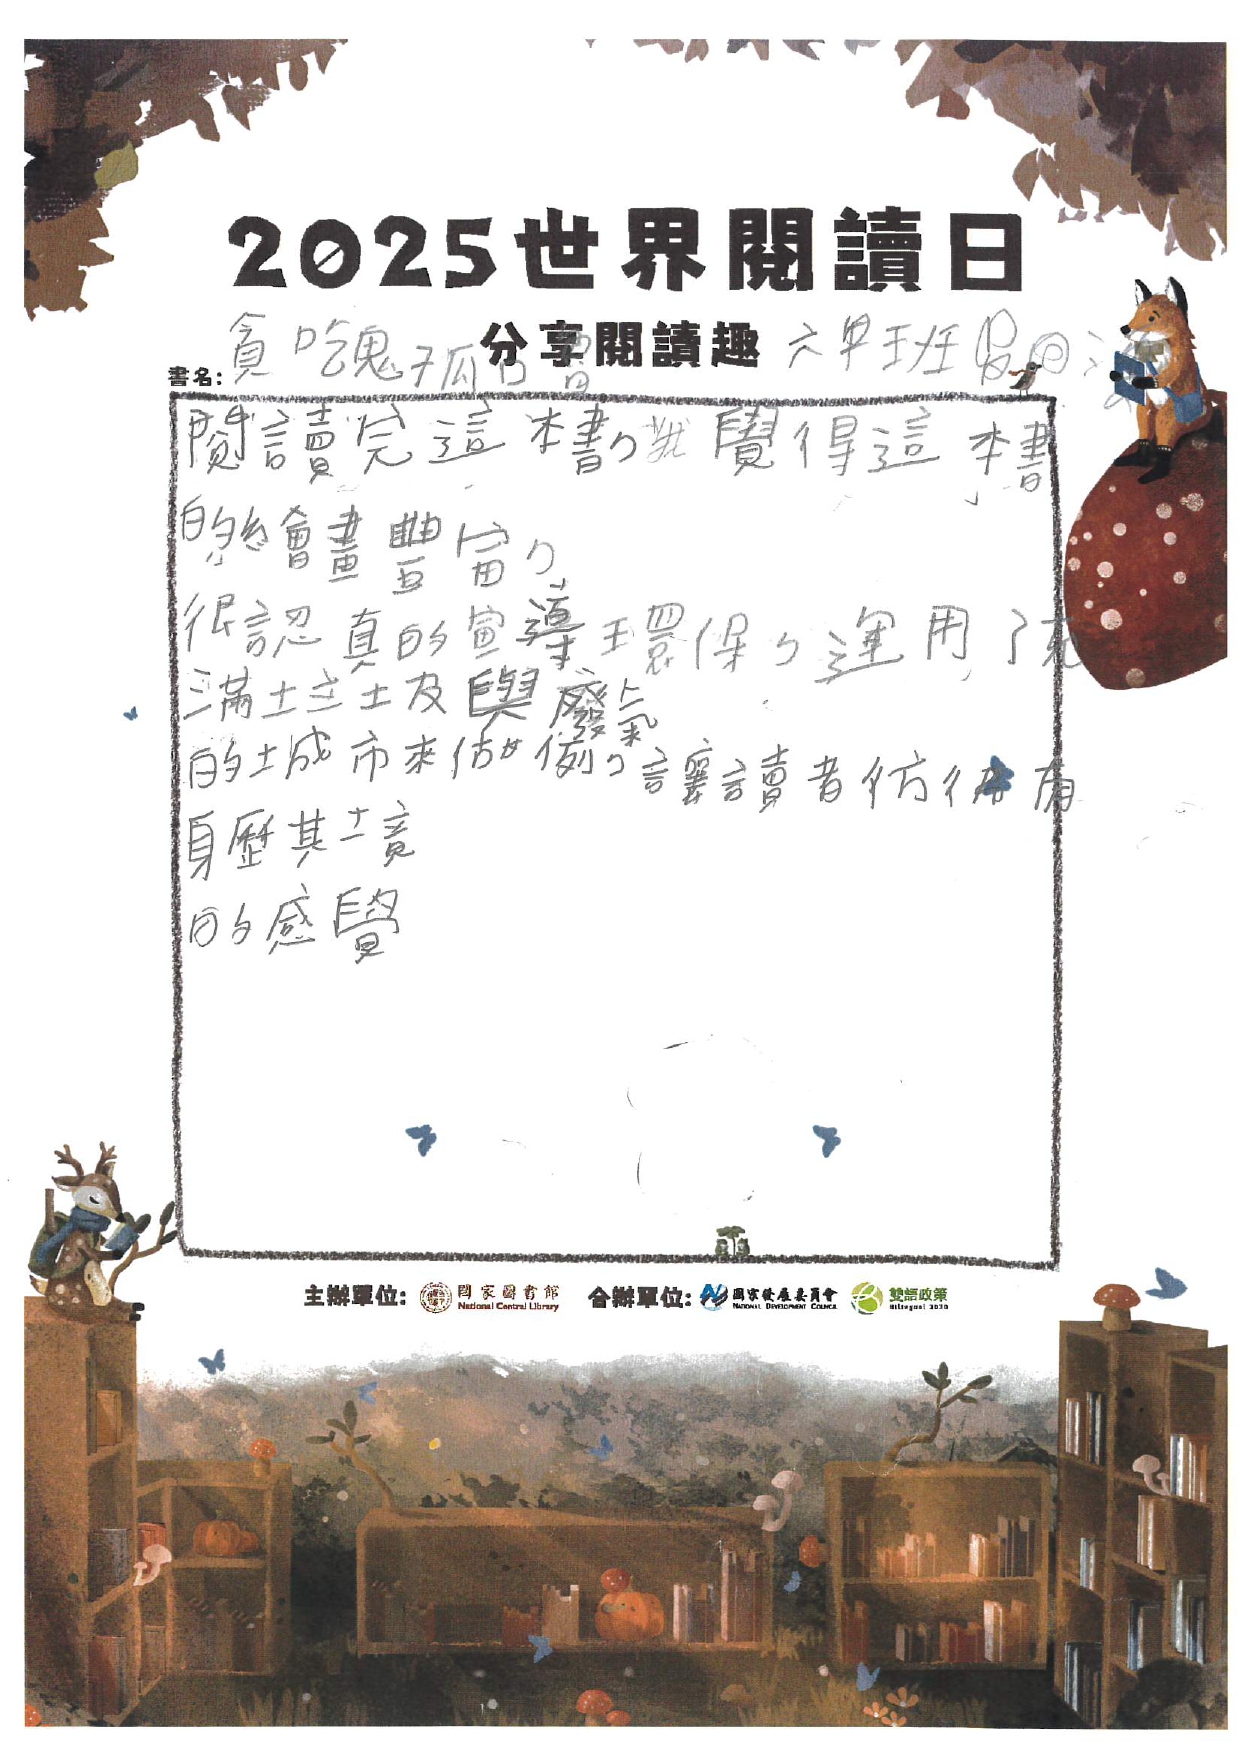 2025世界閱讀日
分享閱讀趣
書名:貪吃鬼孤 六甲班
閱讀完這本書,我覺得這本書
的繪畫豐富,
很認真的宣導環保,運用了充
滿垃圾及與廢氣
的城市來做例,讓讀者彷彿有
身歷其境
的感覺
主辦單位: 國家圖書館 National Central Library 合辦單位: 國家發展委員會 National Development Council 雙語政策 Bilingual 2030